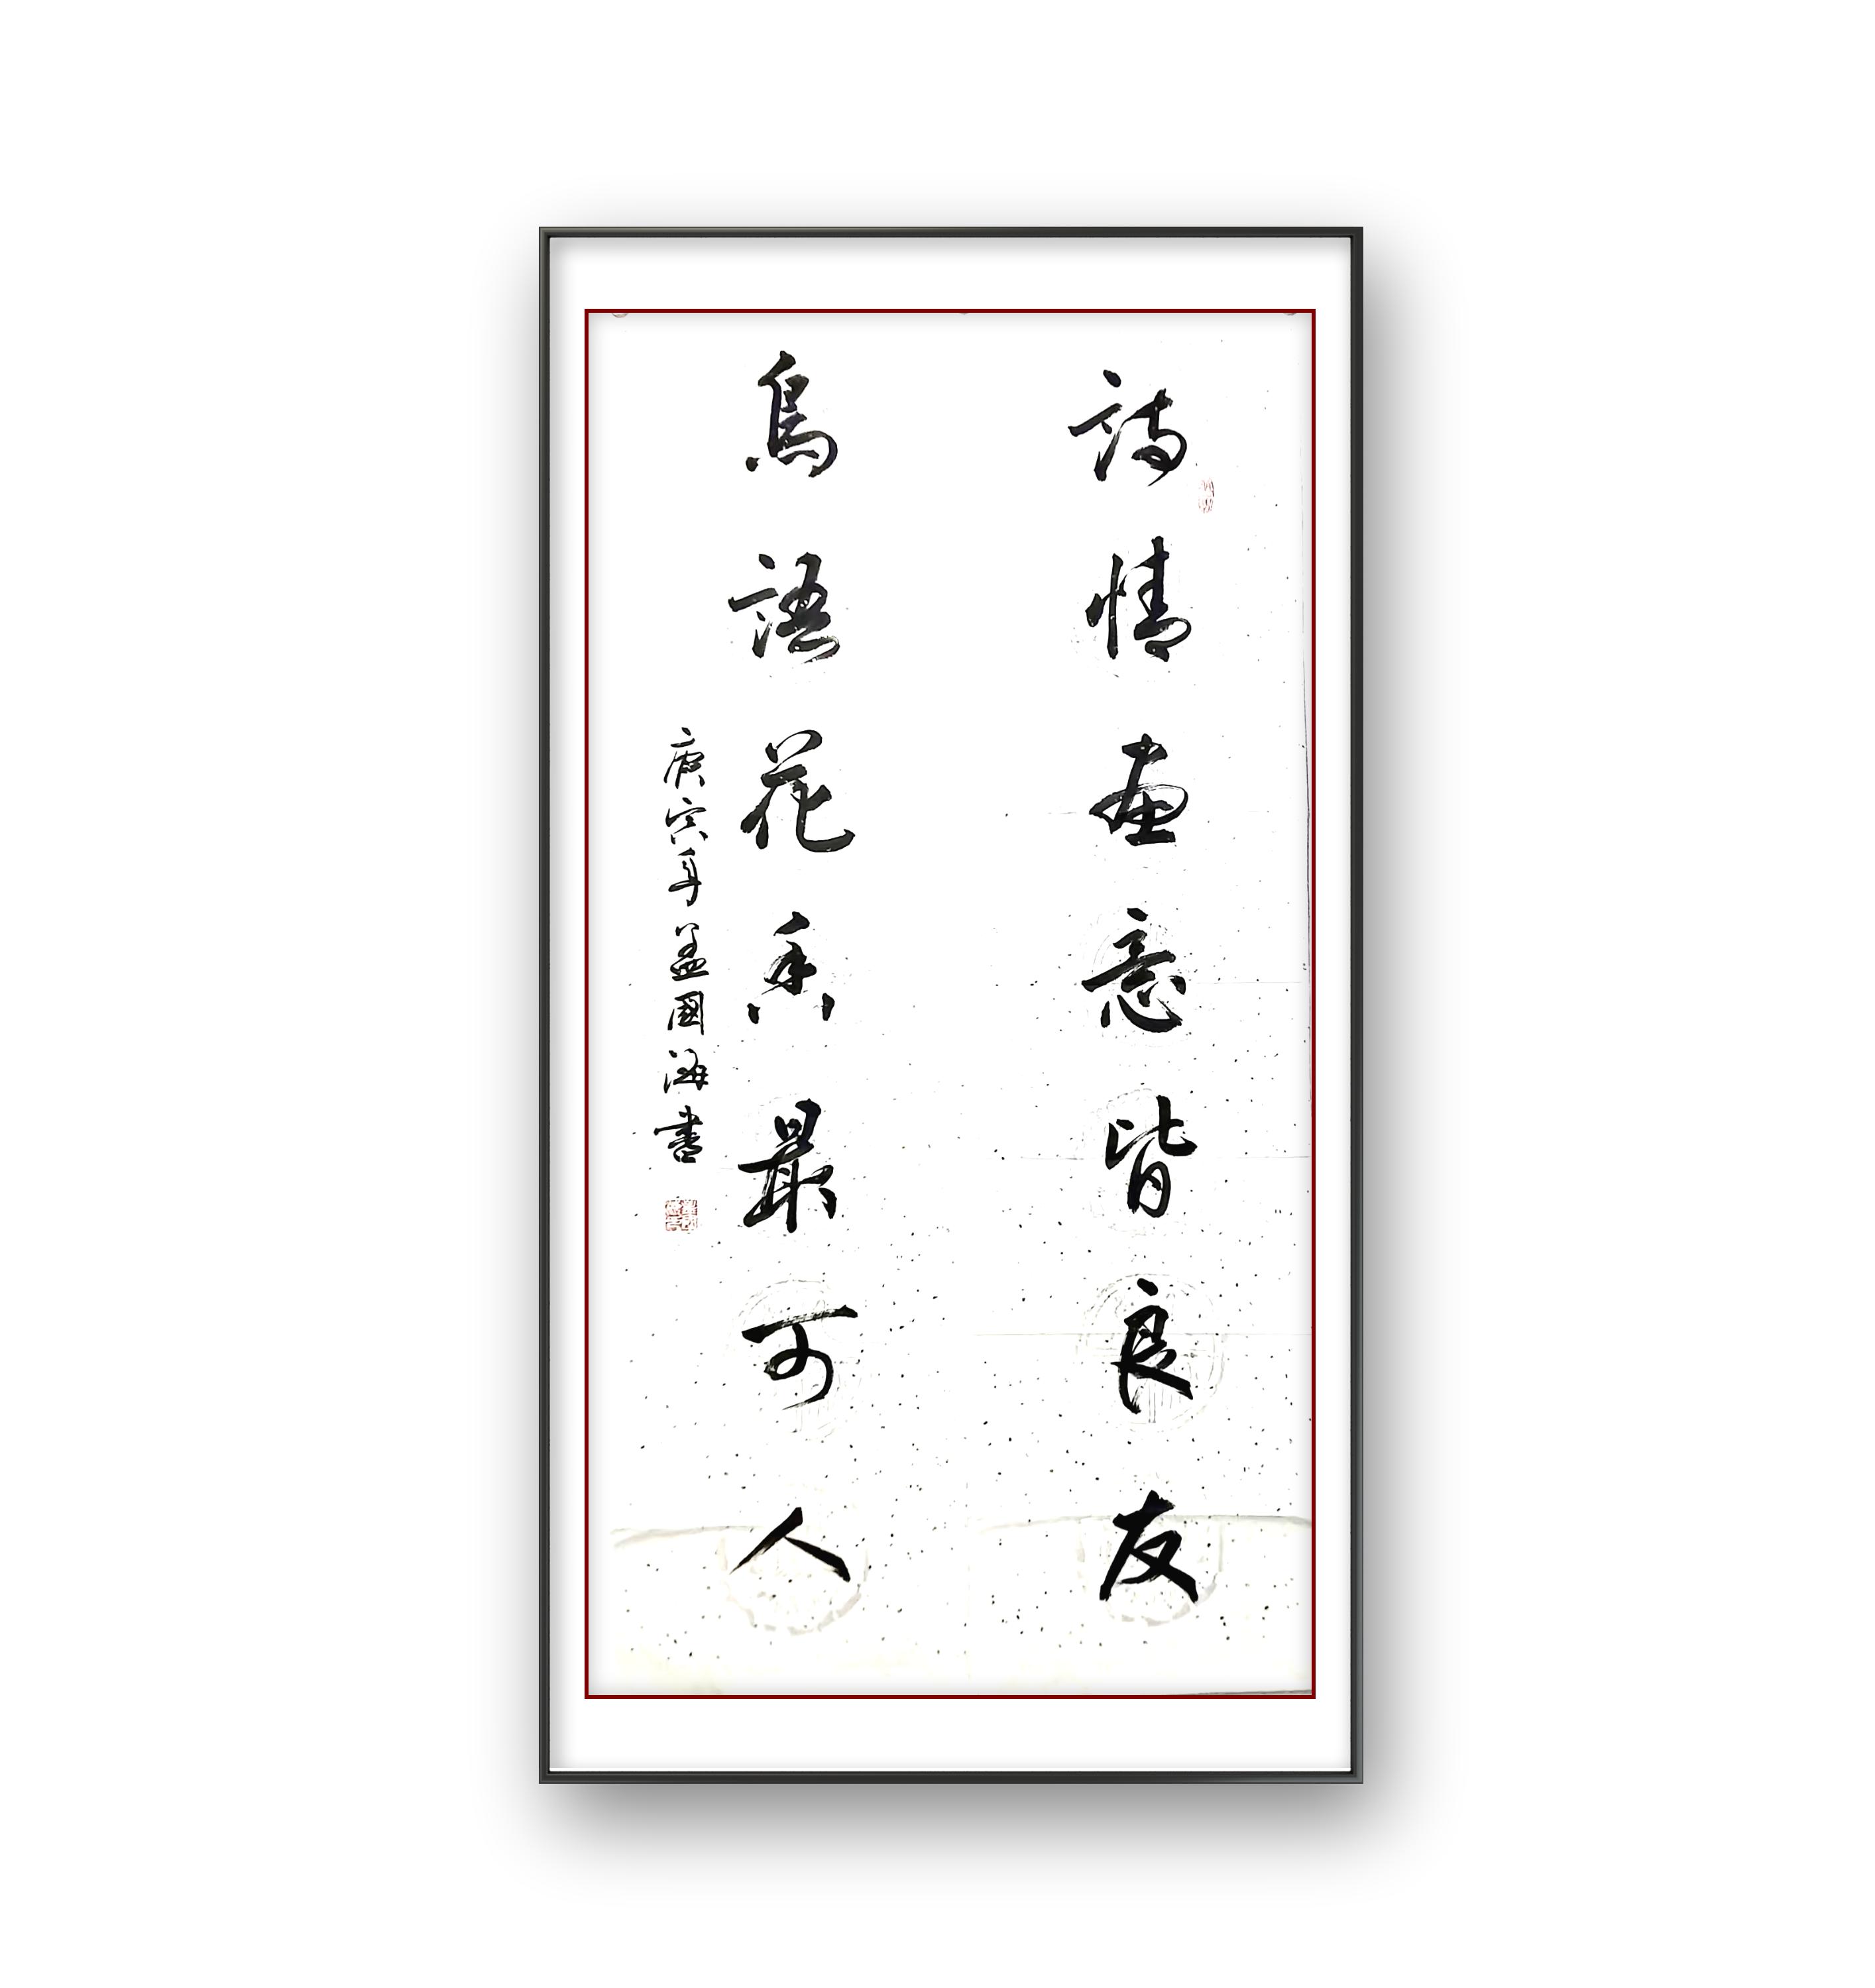 詩情畫意皆良友
鳥語花香最可人
庚寅年盖國海書